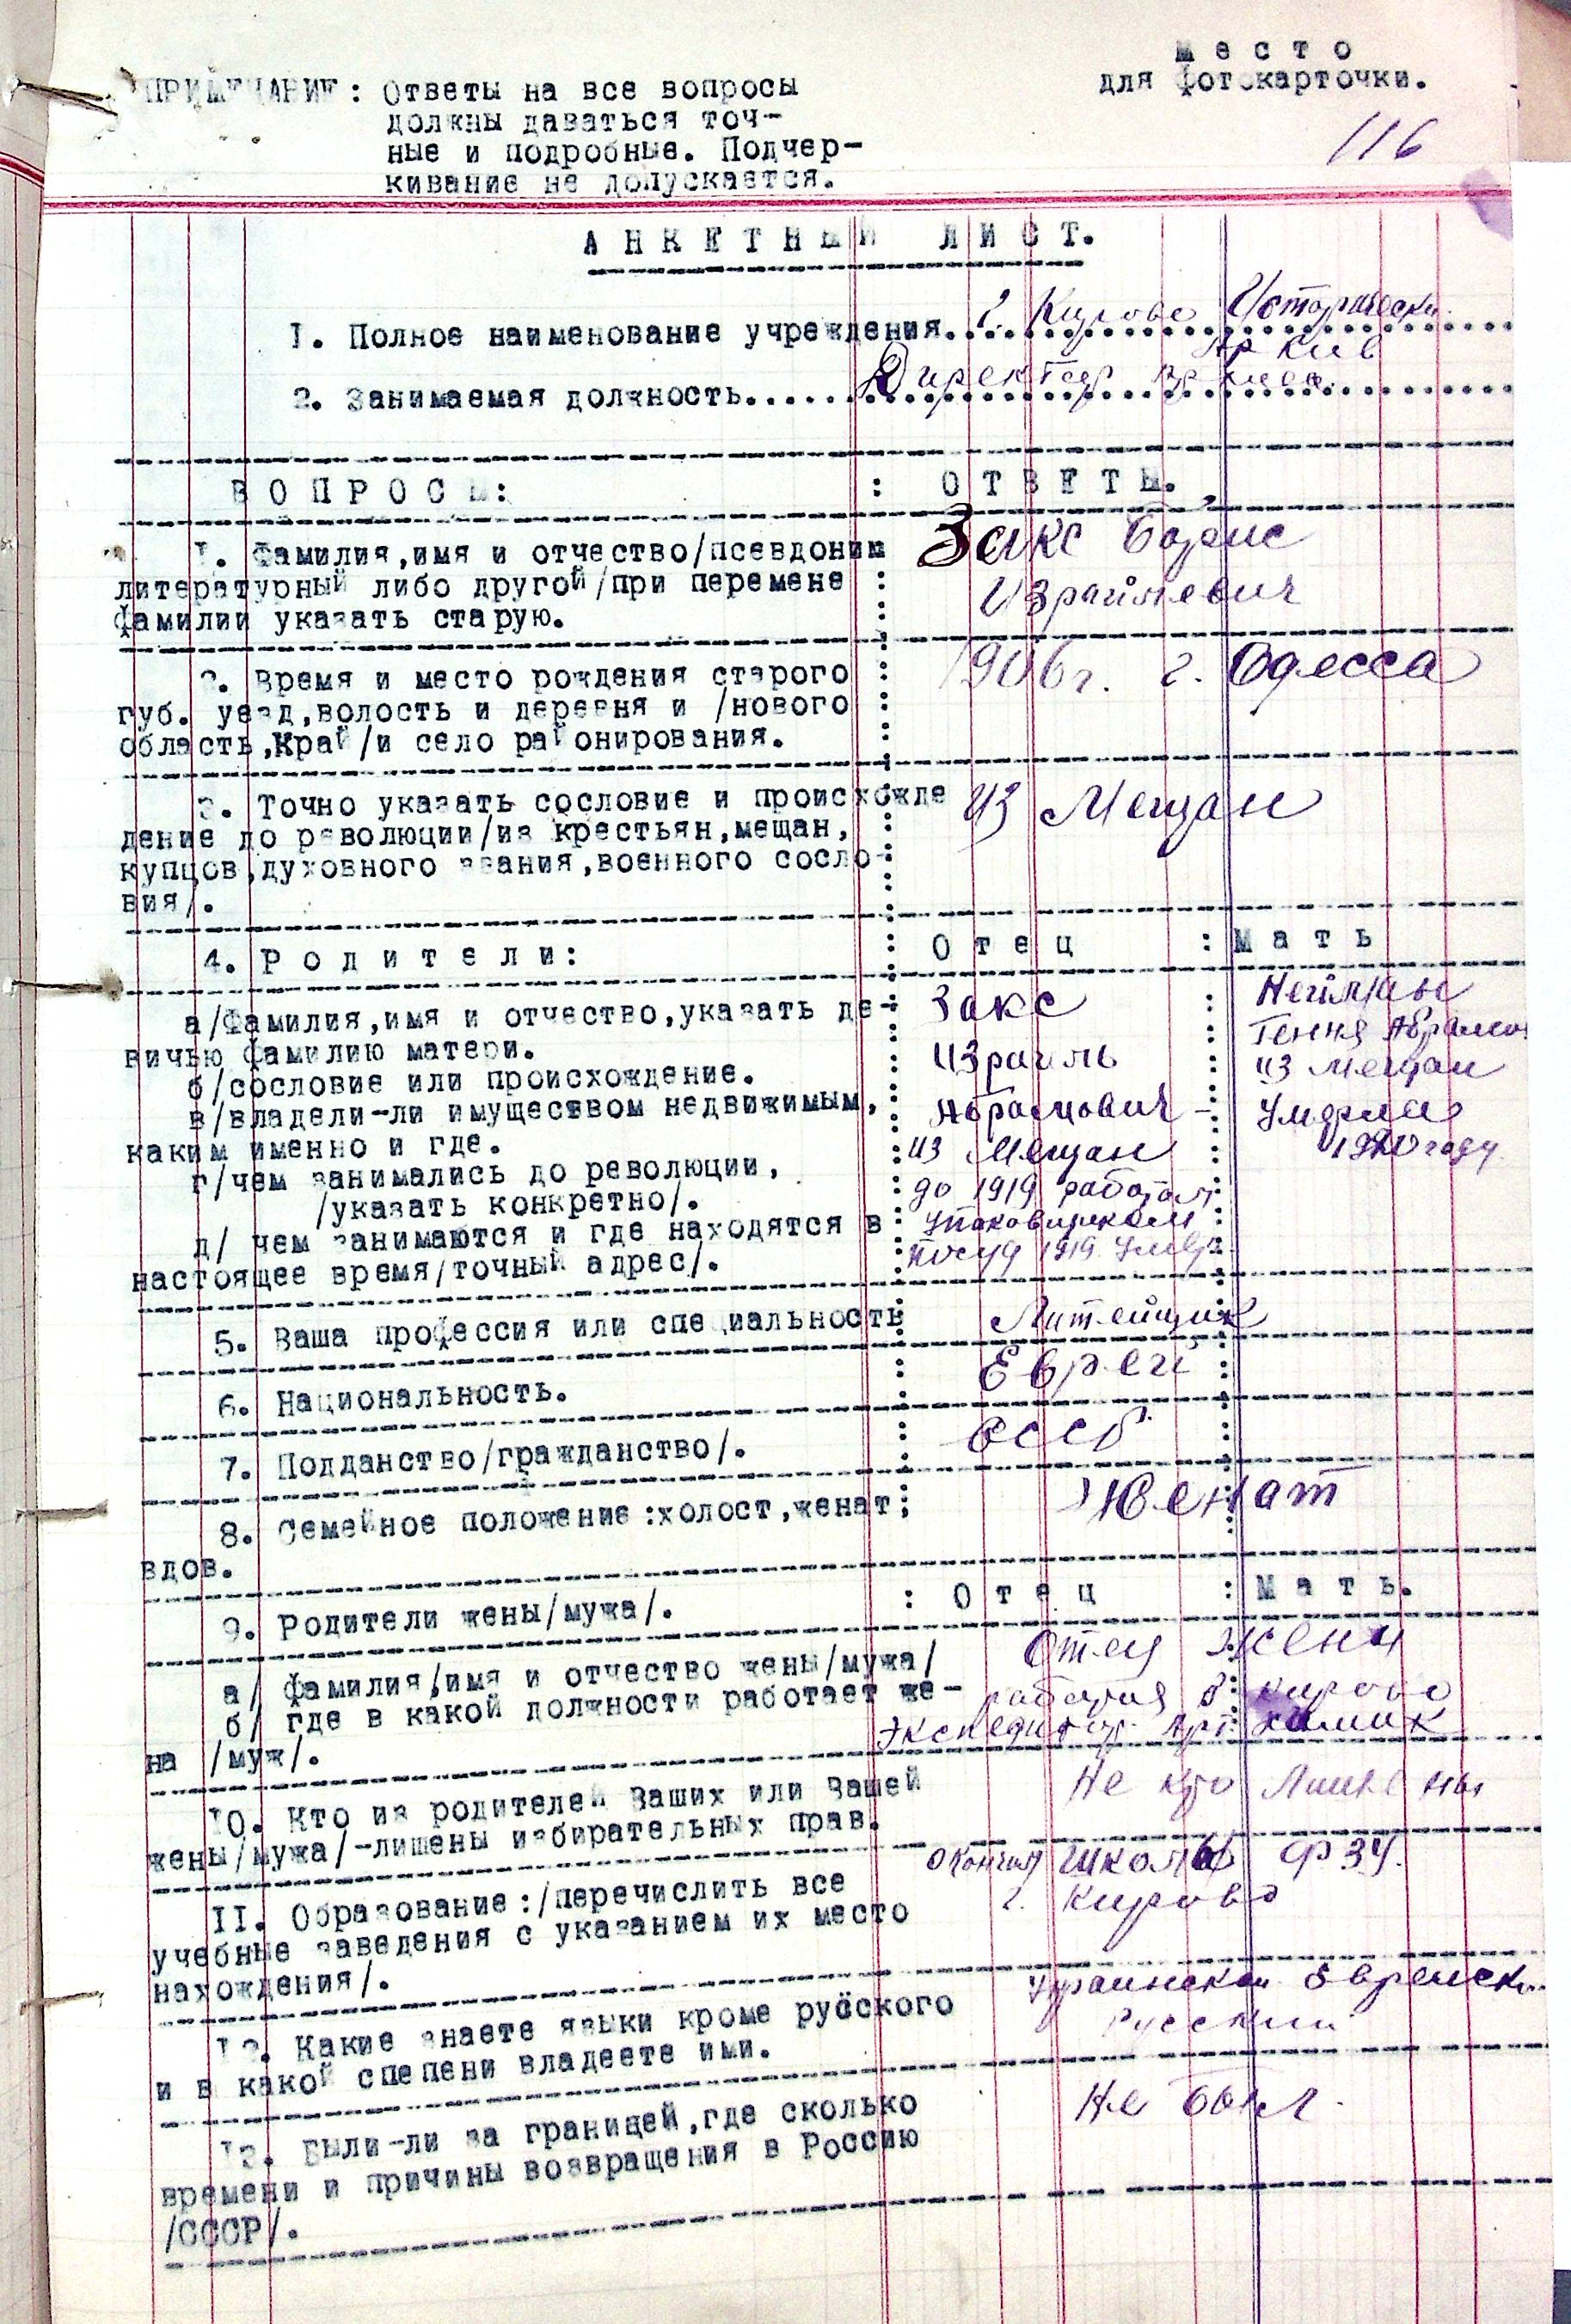 Место
для фотокарточки.
ПРИМЕЧАНИЕ: Ответы на все вопросы
должны даваться точ-
ные и подробные. Подчер-
кивание не допускается.
116
АНКЕТНЫЙ ЛИСТ.
1. Полное наименование учреждения... г. Кирово Исторически
Архив
2. Занимаемая должность... Директор Архива
ВОПРОСЫ: : ОТВЕТЫ.
1. Фамилия,имя и отчество/псевдоним Закс Борис
литературный либо другой/при перемене : Израйлевич
фамилии указать старую.
2. Время и место рождения старого : 1906 г. г. Одесса
губ. уезд,волость и деревня и /нового
область,Край/и село районирования.
3. Точно указать сословие и происхожде из Мещан
дение до революции/из крестьян,мещан,
купцов,духовного звания,военного сосло-
вия/.
4. Родители: : Отец : Мать
а/Фамилия,имя и отчество,указать де- Закс : Нейман
вичью фамилию матери. Израиль : Геня Абрамов
б/сословие или происхождение. Абрамович - из мещан
в/владели-ли имуществом недвижимым, из Мещан Умерла
каким именно и где. 1920 году
г/чем занимались до революции, до 1919 работал
/указать конкретно/. упаковщиком
д/ чем занимаются и где находятся в посуд 1919 умер
настоящее время/точный адрес/.
5. Ваша профессия или специальность Литейщик
6. Национальность. Еврей
7. Подданство/гражданство/. СССР
8. Семейное положение:холост,женат; Женат
вдов.
9. Родители жены/мужа/. : Отец : Мать.
а/ Фамилия,имя и отчество жены/мужа/ Отец жены
б/ где в какой должности работает же- в Кирово
на /муж/. Экспедитор Арт. Химик
10. Кто из родителей Ваших или Вашей Не кто Лишены
жены/мужа/-лишены избирательных прав.
11. Образование:/перечислить все окончил школы ФЗУ.
учебные заведения с указанием их место г. Кирово
нахождения/.
12. Какие знаете языки кроме русского Еврейски
и в какой спепени владеете ими. Русский
13. Были-ли за границей,где сколько Не был.
времени и причины возвращения в Россию
/СССР/.